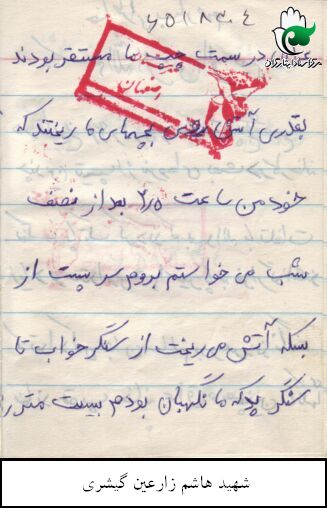 ۶۵۱۸۳۰۴
در سمت چپ ما مستقر بودند
بقدری آتش روی بچهای ما ریختند که
خود من ساعت ۲/۵ بعد از نصف
شب می خواستم بروم سر پست از
بسکه آتش می ریخت از سنگر خواب تا
سنگر یکه ما نگهبان بودم بیست متر
شهید هاشم زارعین گیشری